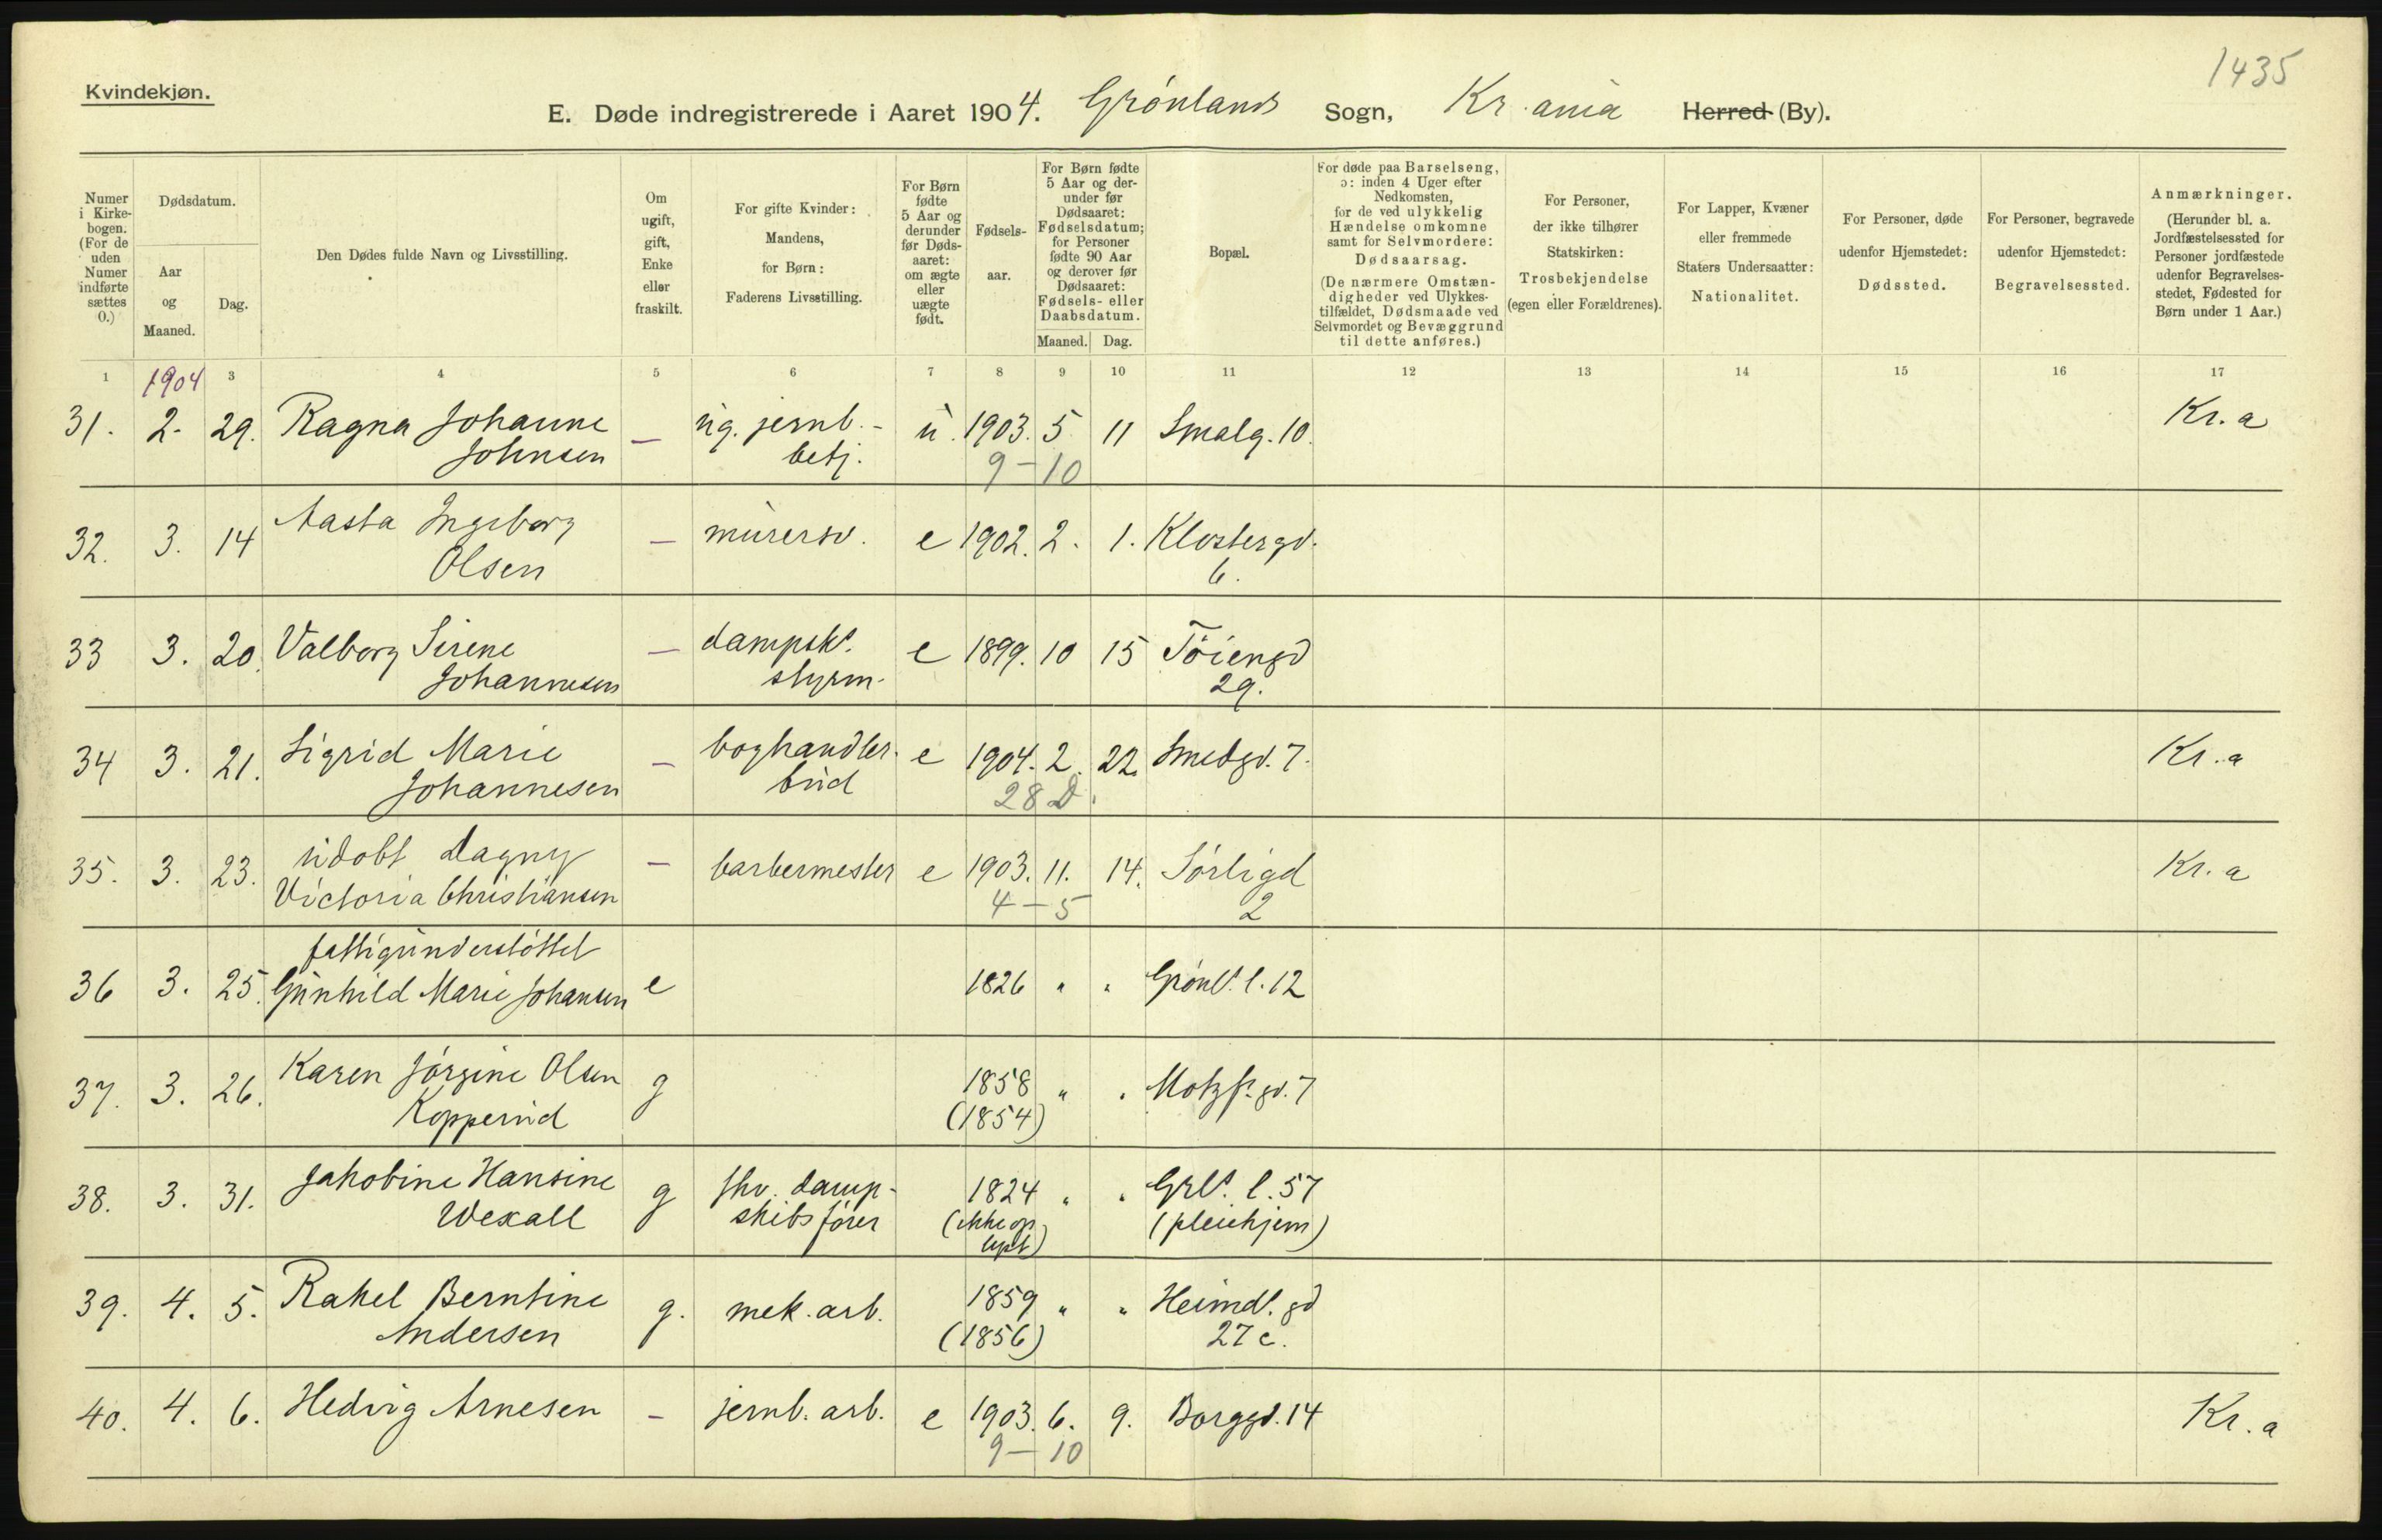 1435
Kvindekjøn.
E. Døde indregistrerede i Aaret 1904. Grønlands Sogn, Kr.ania Herred (By).
Numer i Kirke-bogen. (For de uden Numer indførte sættes 0.)
Dødsdatum.
Aar og Maaned.
Dag.
Den Dødes fulde Navn og Livsstilling.
Om ugift, gift, Enke eller fraskilt.
For gifte Kvinder: Mandens, for Børn: Faderens Livsstilling.
For Børn fødte 5 Aar og derunder før Døds-aaret: om ægte eller uægte født.
Fødsels-aar.
For Børn fødte 5 Aar og der-under før Dødsaaret: Fødselsdatum; for Personer fødte 90 Aar og derover før Dødsaaret: Fødsels- eller Daabsdatum.
Maaned. Dag.
Bopæl.
For døde paa Barselseng, ɔ: inden 4 Uger efter Nedkomsten, for de ved ulykkelig Hændelse omkomne samt for Selvmordere: Dødsaarsag. (De nærmere Omstæn-digheder ved Ulykkes-tilfældet, Dødsmaade ved Selvmordet og Bevæggrund til dette anføres.)
For Personer, der ikke tilhører Statskirken: Trosbekjendelse (egen eller Forældrenes).
For Lapper, Kvæner eller fremmede Staters Undersaatter: Nationalitet.
For Personer, døde udenfor Hjemstedet: Dødssted.
For Personer, begravede udenfor Hjemstedet: Begravelsessted.
Anmærkninger. (Herunder bl. a. Jordfæstelsessted for Personer jordfæstede udenfor Begravelses-stedet, Fødested for Børn under 1 Aar.)
1 3 4 5 6 7 8 9 10 11 12 13 14 15 16 17
1904
31. 2. 29. Ragna Johanne — ug. jernb.- u. 1903. 5 11 Smalg. 10. Kr.a
Johnsen betj. 9-10
32. 3. 14 Aasta Ingeborg — murersv. e 1902. 2. 1. Klostergd.
Olsen 6.
33 3. 20. Valborg Sirene — dampsk. e 1899. 10 15 Töiengd
Johannesen styrm. 29.
34 3. 21. Sigrid Marie — boghandler- e 1904. 2. 22. Smedgd. 7. Kr.a
Johannesen bud 28 D.
35. 3. 23. udøbt Dagny — barbermester e 1903. 11. 14. Sørligd Kr.a
Victoria Christiansen 4-5 2
fattigunderstøttet
36 3. 25. Gunhild Marie Johansen e 1826 " " Grønl. l. 12
37. 3. 26. Karen Jørgine Olsen g 1858 " " Motzf. gd. 7
Kopperud (1854)
38. 3. 31. Jakobine Hansine g fhv. damp- 1824 " " Grl. l. 57
Wexall skibsfører (ikke op (pleiehjem)
39. 4. 5. Rakel Berntine g. mek. arb. 1859 " " Heimdl. gd
Andersen (1856) 27 c.
40. 4. 6. Hedvig Arnesen - jernb. arb. e 1903. 6. 9. Borggd. 14 Kr.a
9-10